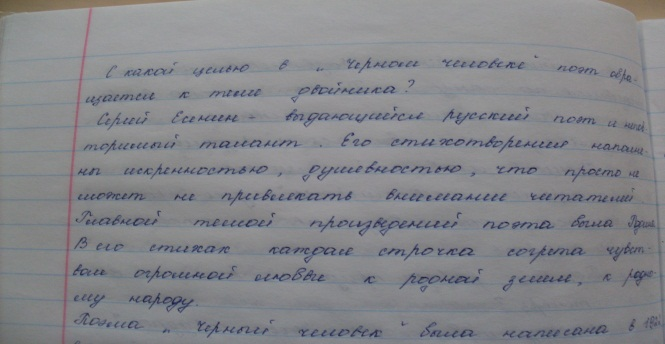 С какой целью в „Черном человеке" поэт обра-
щается к теме двойника?
Сергей Есенин - выдающийся русский поэт и непов
торимый талант. Его стихотворения наполне-
ны искренностью, душевностью, что просто не
может не привлекать внимание читателей
Главной темой произведений поэта была Родина
В его стихах каждая строчка согрета чувст-
вом огромной любви к родной земле, к родно-
му народу.
Поэма „Черный человек" была написана в